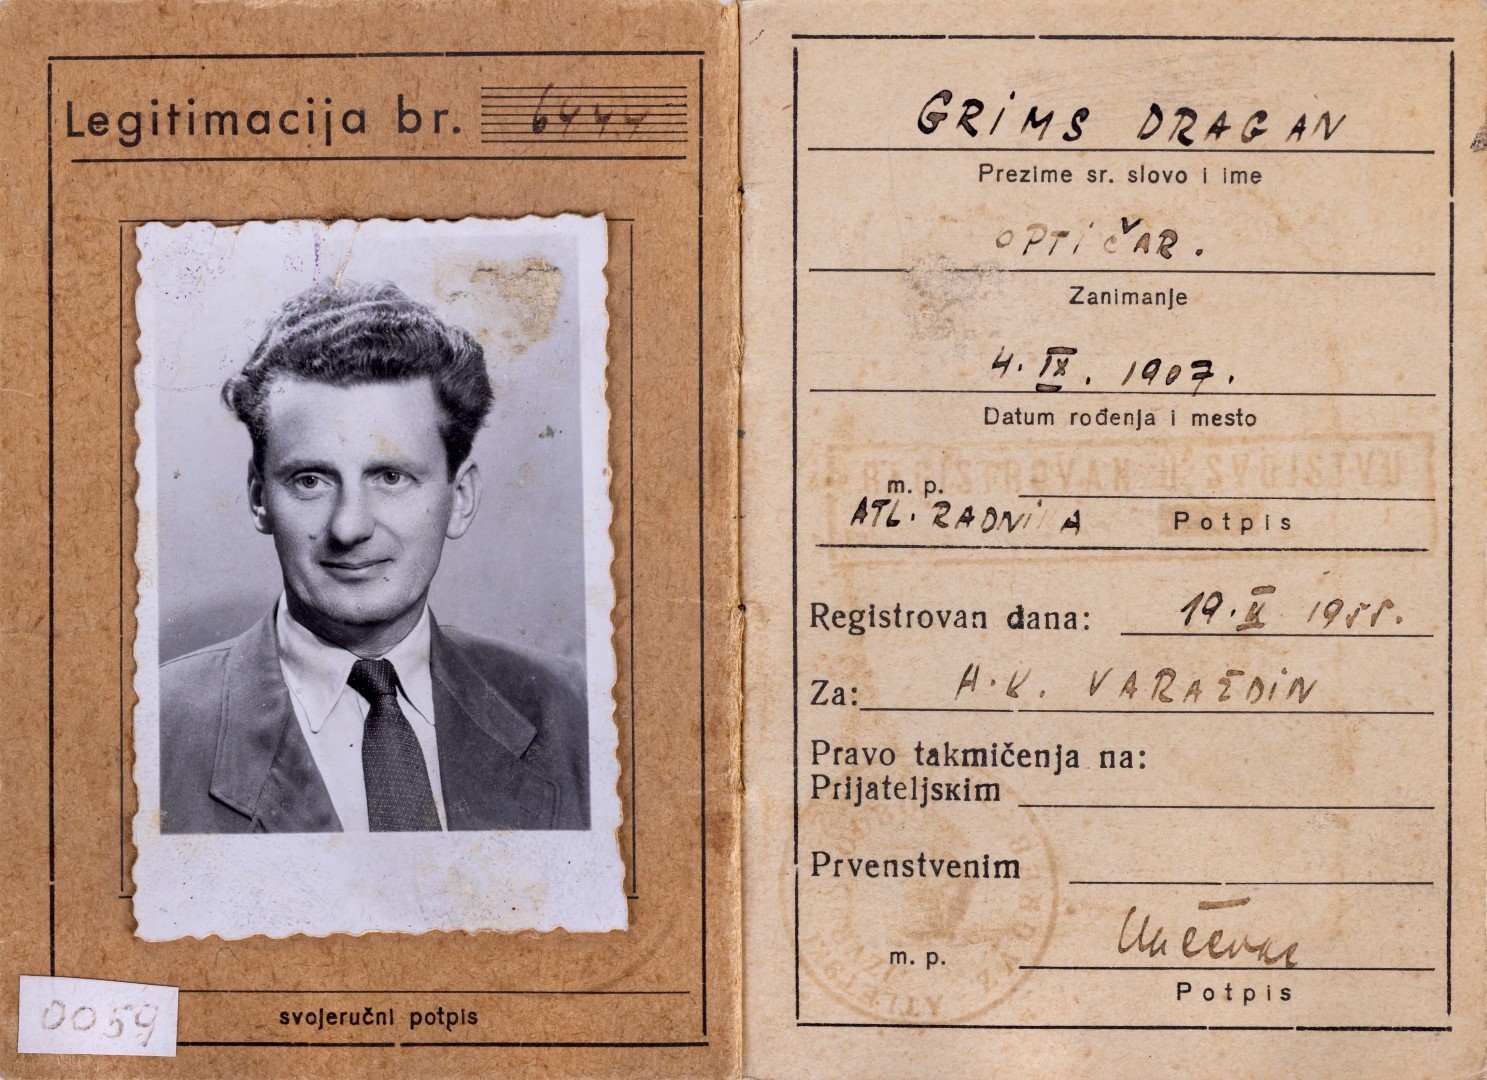 Legitimacija br. 6444
svojeručni potpis
0059
GRIMS DRAGAN
Prezime sr. slovo i ime
OPTIČAR.
Zanimanje
4. IX. 1907.
Datum rođenja i mesto
m. p.
ATL. RADNI A
Potpis
Registrovan dana: 19. 1955.
Za: H.K. VARAŽDIN
Pravo takmičenja na:
Prijateljskim
Prvenstvenim
m. p.
Potpis